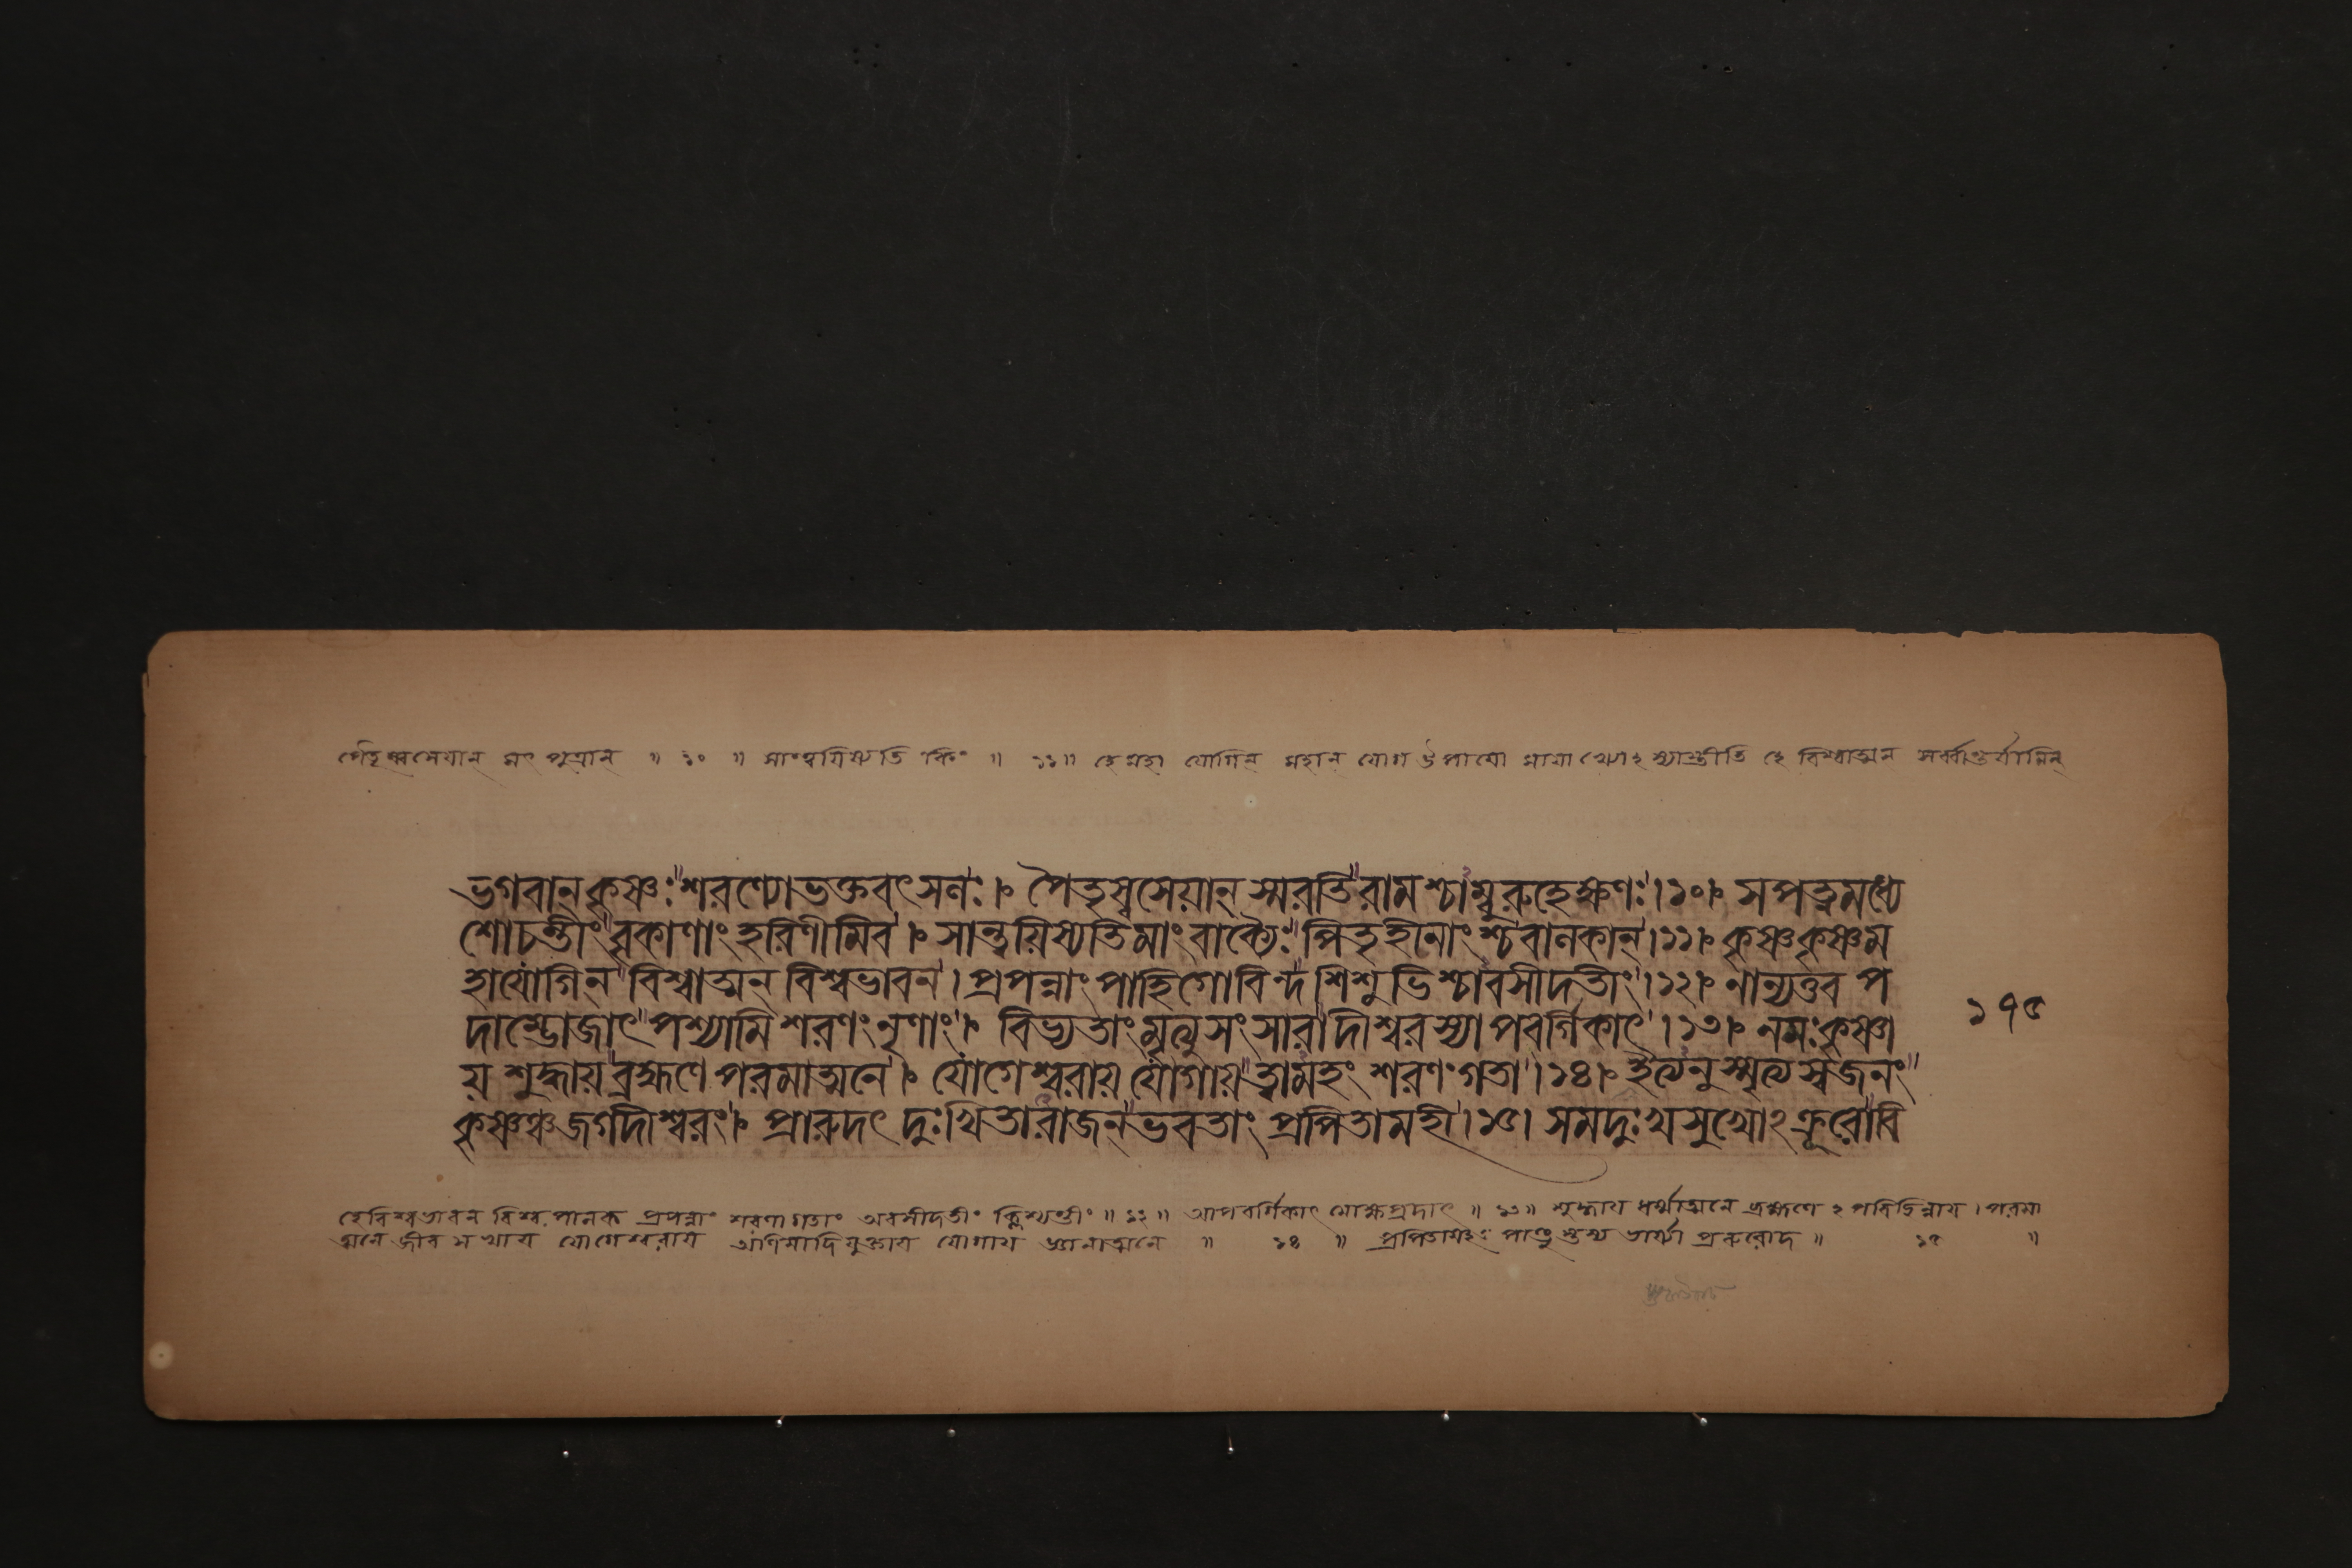 পৈতৃষ্বসেয়ান্ মৎ পুত্রান্ ॥ ১০ ॥ সান্ত্বয়িষ্যতি কিং ॥ ১১॥ হে মহা যোগিন্ মহান্ যোগ উপায়ো মায়া খ্যোঽস্যাস্তীতি হে বিশ্বাত্মন্ সর্ব্বান্তর্যামিন্
ভগবান্ কৃষ্ণঃ শরণ্যোভক্তবৎসলঃ। পৈতৃস্বসেয়ান্ স্মরতি রামশ্চাম্বুরুহেক্ষণঃ।১০। সপত্নমধ্যে
শোচন্তীং বৃকাণাং হরিণীমিব। সান্ত্বয়িস্যেতিমাং বাক্যৈঃ পিতৃহীনাংশ্চবালকান্।১১। কৃষ্ণকৃষ্ণম
হাযোগিন্ বিশ্বাত্মন্ বিশ্বভাবন। প্রপন্নাং পাহিগোবিন্দ শিশুভিশ্চাবসীদতীং।১২। নান্যত্তব প
দাম্ভোজাৎ পশ্যামি শরণং নৃণাং। বিভ্যতাং মৃত্যুসংসারাদীশ্বরস্যাপবর্গিকাৎ।১৩। নমঃ কৃষ্ণা
য় শুদ্ধায় ব্রহ্মণে পরমাত্মনে। যোগেশ্বরায় যোগায় ত্বামহং শরণং গতা।১৪। ইত্যনুস্মৃত্য স্বজনং
কৃষ্ণঞ্চ জগদীশ্বরং। প্রারুদৎ দুঃখিতারাজন্ ভবতাং প্রপিতামহী।১৫। সমদুঃখসুখোঽক্রূরোবি
১৭৫
হেবিশ্বভাবন বিশ্ব পালক প্রপন্নাং শরণাগতাং অবসীদতীং ক্লিশ্যন্তীং ॥১২॥ আপবর্গিকাৎ মোক্ষপ্রদাৎ ॥ ১৩॥ শুদ্ধায় ধর্ম্মাত্মনে ব্রহ্মণেঽপরিচ্ছিন্নায়। পরমা
ত্মনে জীব সখায় যোগেশ্বরায় অণিমাদিযুক্তায় যোগায় জ্ঞানাত্মনে ॥ ১৪ ॥ প্রপিতামহী পাণ্ডু ভার্য্যা প্ররুরোদ ॥ ১৫ ॥